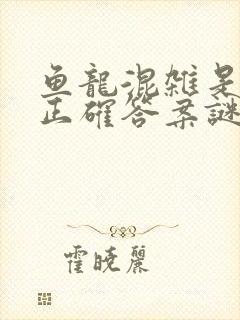 鱼龍混雜是
正確答案謎
霍晓麗